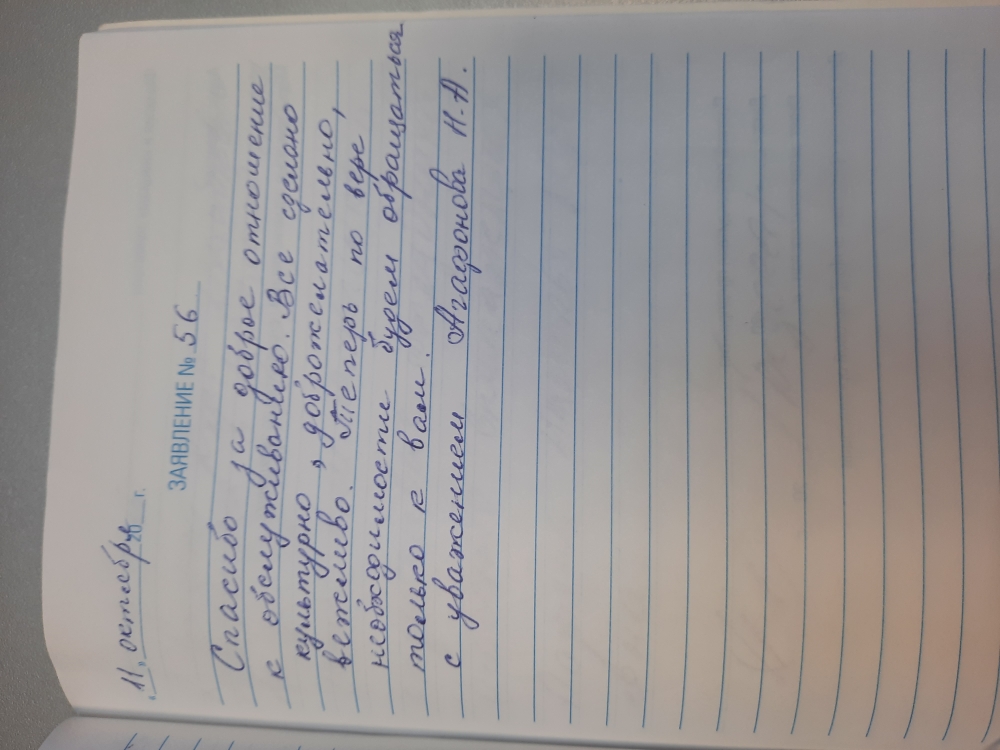 "11" октября 20__г.
ЗАЯВЛЕНИЕ № 56
Спасибо за доброе отношение
к обслуживанию. Все сделано
культурно, доброжелательно,
вежливо. Теперь по вере
необходимости будем обращаться
только к вам.
с уважением Агафонова Н.А.